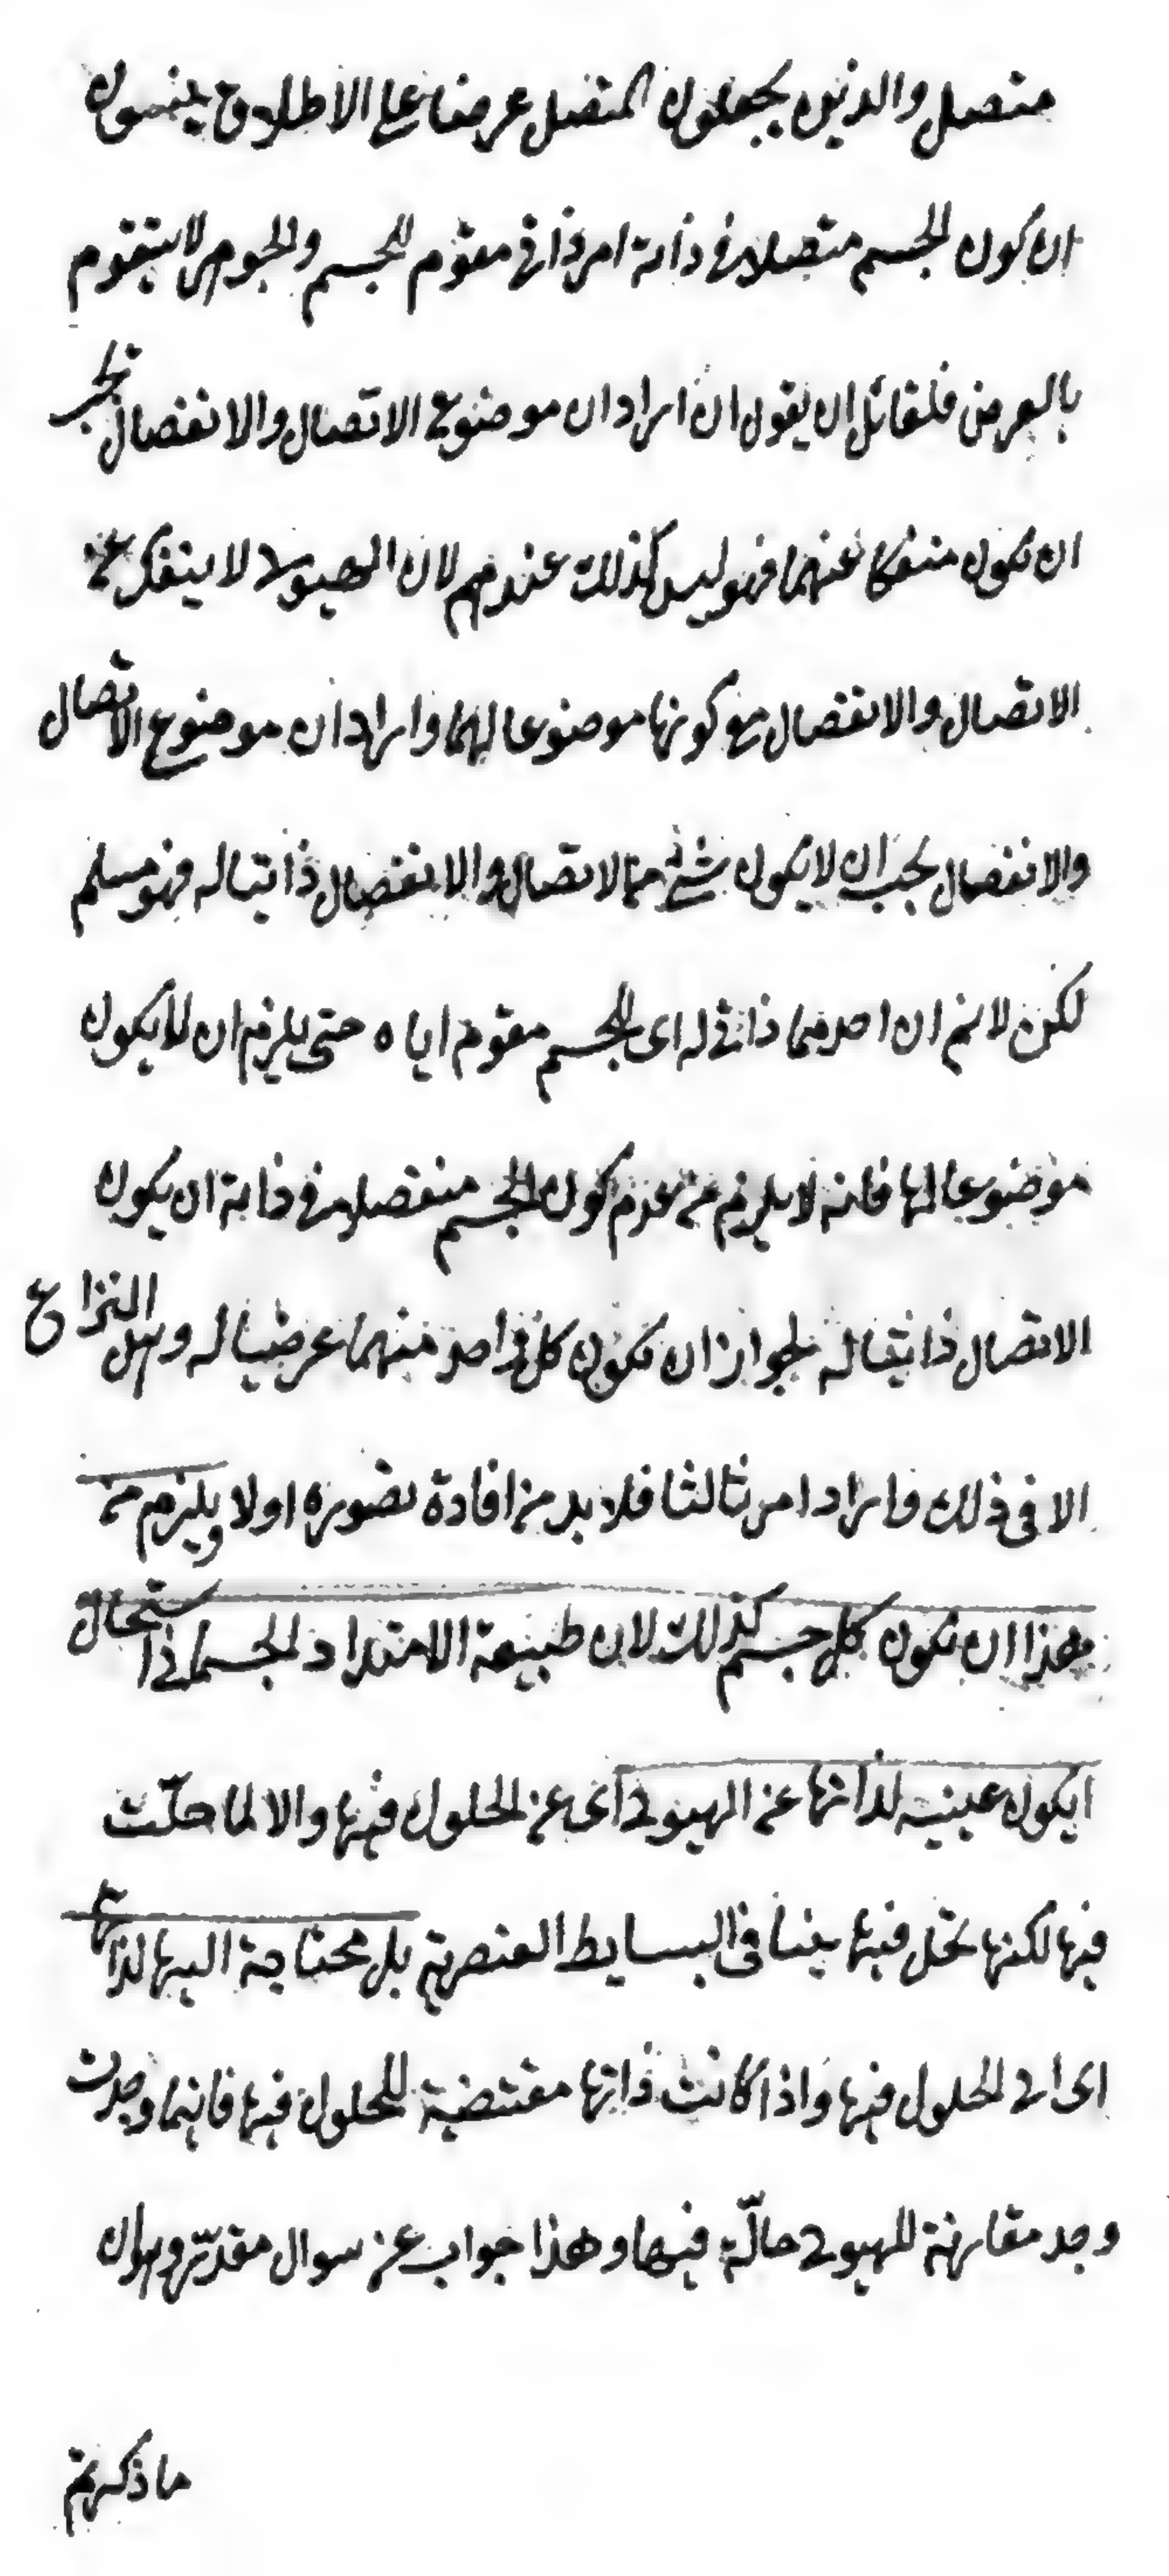 متصل والذين يجعلون المتصل عرضا على الاطلاق ينسون
ان كون الجسم متصلا في ذاته امر ذاتي مقوّم للجسم والجوهر لا يتقوم
بالعرض فلقائل ان يقول ان اراد ان موضوع الاتصال والانفصال يجب
ان يكون منفكا عنهما فهو ليس كذلك عندهم لان الهيولى لا ينفك عن
الاتصال والانفصال مع كونها موضوعا لهما وان اراد ان موضوع الاتصال
والانفصال يجب ان لا يكون شئ من الاتصال والانفصال ذاتيا له فهو مسلم
لكن لانم ان احدهما ذاتي له اى للجسم مقوم اياه حتى يلزم ان لا يكون
موضوعا لها فانه لا يلزم من عدم كون الجسم منفصلا في ذاته ان يكون
الاتصال ذاتيا له لجواز ان يكون كل واحد منهما عرضيا له وهل النزاع
الا في ذلك وان اراد امرا ثالثا فلا بد من افادة تصوره اولا ويلزم من
هذا ان يكون كل جسم كذلك لان طبيعة الامتداد الجسماني استحال
ان يكون غنية لذاتها عن الهيولى اى عن الحلول فيها والا لما حلّت
فيها لكنها تحل فيها بينا في البسايط العنصرية بل محتاجة اليها لذاتها
اى الى الحلول فيها واذا كانت ذاتها مقتضية للحلول فيها فاينما وجدت
وجد مقارنة للهيولى حالّة فيها وهذا جواب عن سوال مقدّر وهو ان
ما ذكرتم